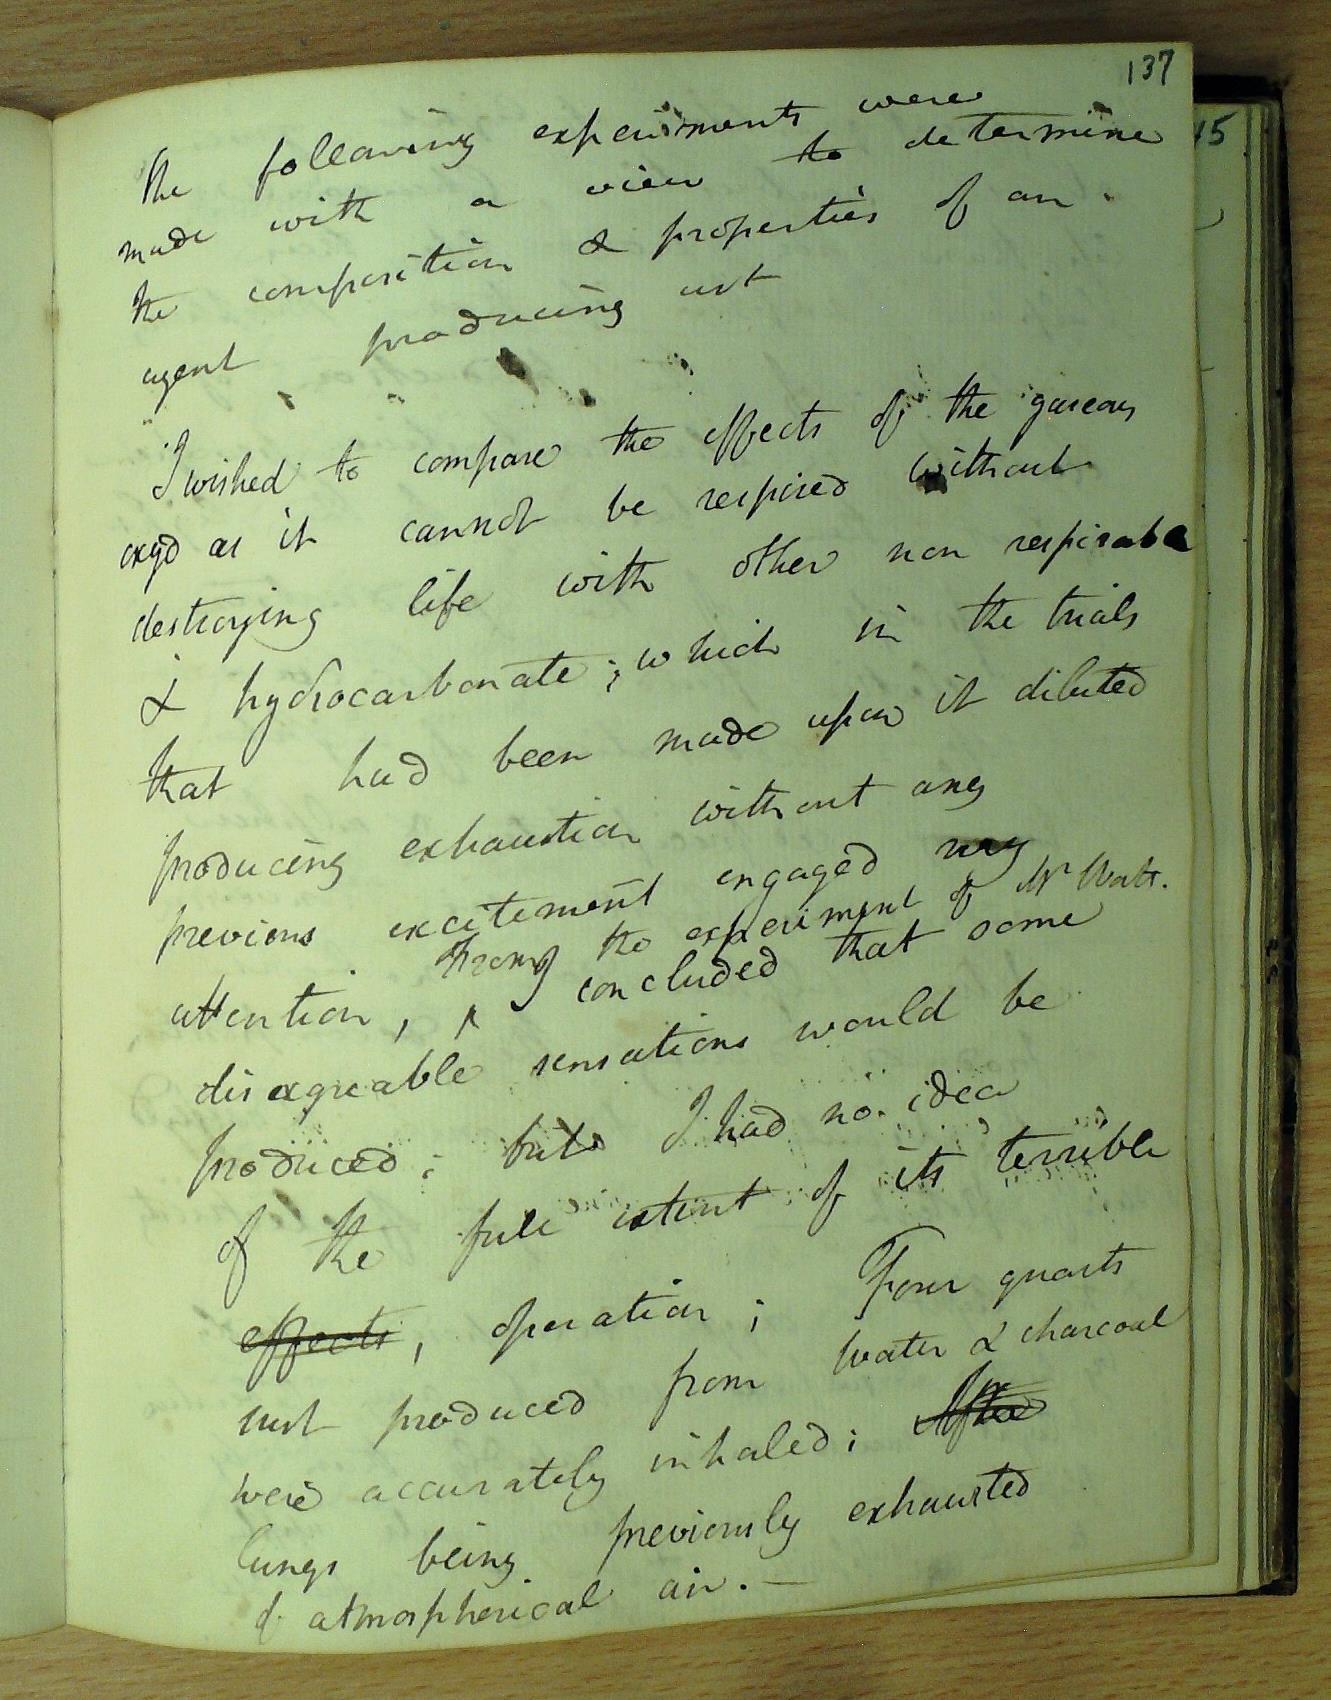 137
15
The following experiments were
made with a view to determine
the composition & properties of an
agent producing not
I wished to compare the effects of the gaseous
oxyd as it cannot be respired without
destroying life with other non respirable
& hydrocarbonate; which in the trials
that had been made upon it diluted
producing exhaustion without any
previous excitement engaged my
from the experiment of Mr Watt.
attention, ^ I concluded that some
disagreable sensations would be
produced; but I had no idea
of the full extent of its terrible
effects, operation; Four quarts
just produced from water & charcoal
were accurately inhaled; After
lungs being previously exhausted
of atmospherical air. —